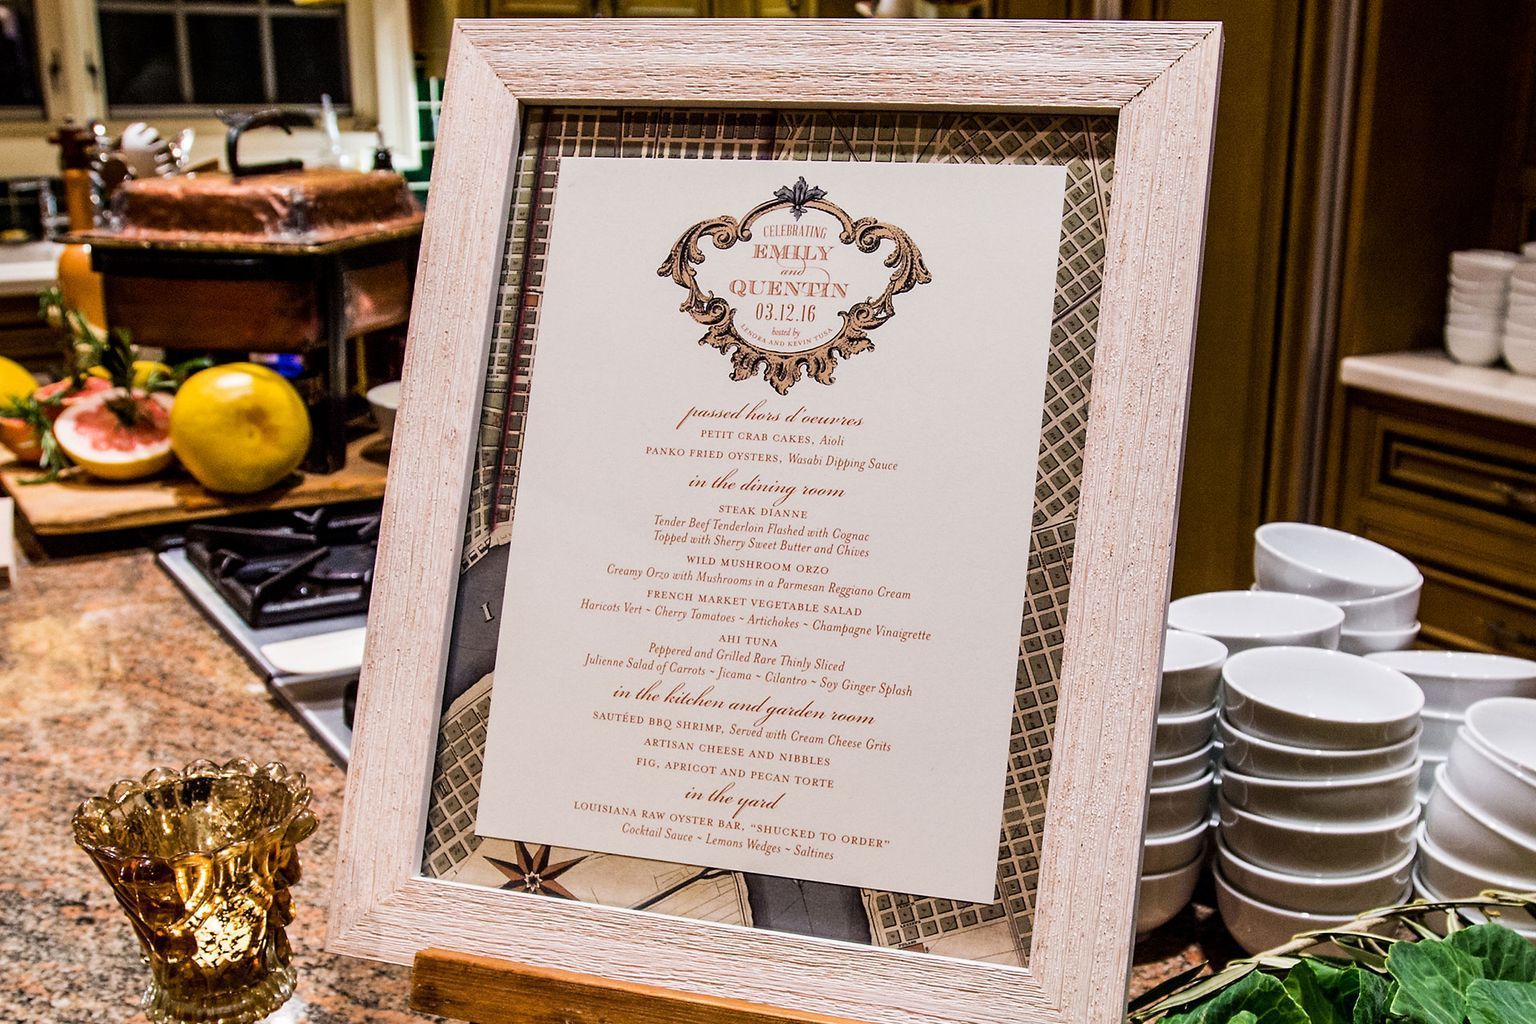 CELEBRATING
EMILY
and
QUENTIN
03.12.16
hosted by
LENORA AND KEVIN TUSA
passed hors d'oeuvres
PETIT CRAB CAKES, Aioli
PANKO FRIED OYSTERS, Wasabi Dipping Sauce
in the dining room
STEAK DIANNE
Tender Beef Tenderloin Flashed with Cognac
Topped with Sherry Sweet Butter and Chives
WILD MUSHROOM ORZO
Creamy Orzo with Mushrooms in a Parmesan Reggiano Cream
FRENCH MARKET VEGETABLE SALAD
Haricots Vert ~ Cherry Tomatoes ~ Artichokes ~ Champagne Vinaigrette
AHI TUNA
Peppered and Grilled Rare Thinly Sliced
Julienne Salad of Carrots ~ Jicama ~ Cilantro ~ Soy Ginger Splash
in the kitchen and garden room
SAUTÉED BBQ SHRIMP, Served with Cream Cheese Grits
ARTISAN CHEESE AND NIBBLES
FIG, APRICOT AND PECAN TORTE
in the yard
LOUISIANA RAW OYSTER BAR, "SHUCKED TO ORDER"
Cocktail Sauce ~ Lemons Wedges ~ Saltines
I